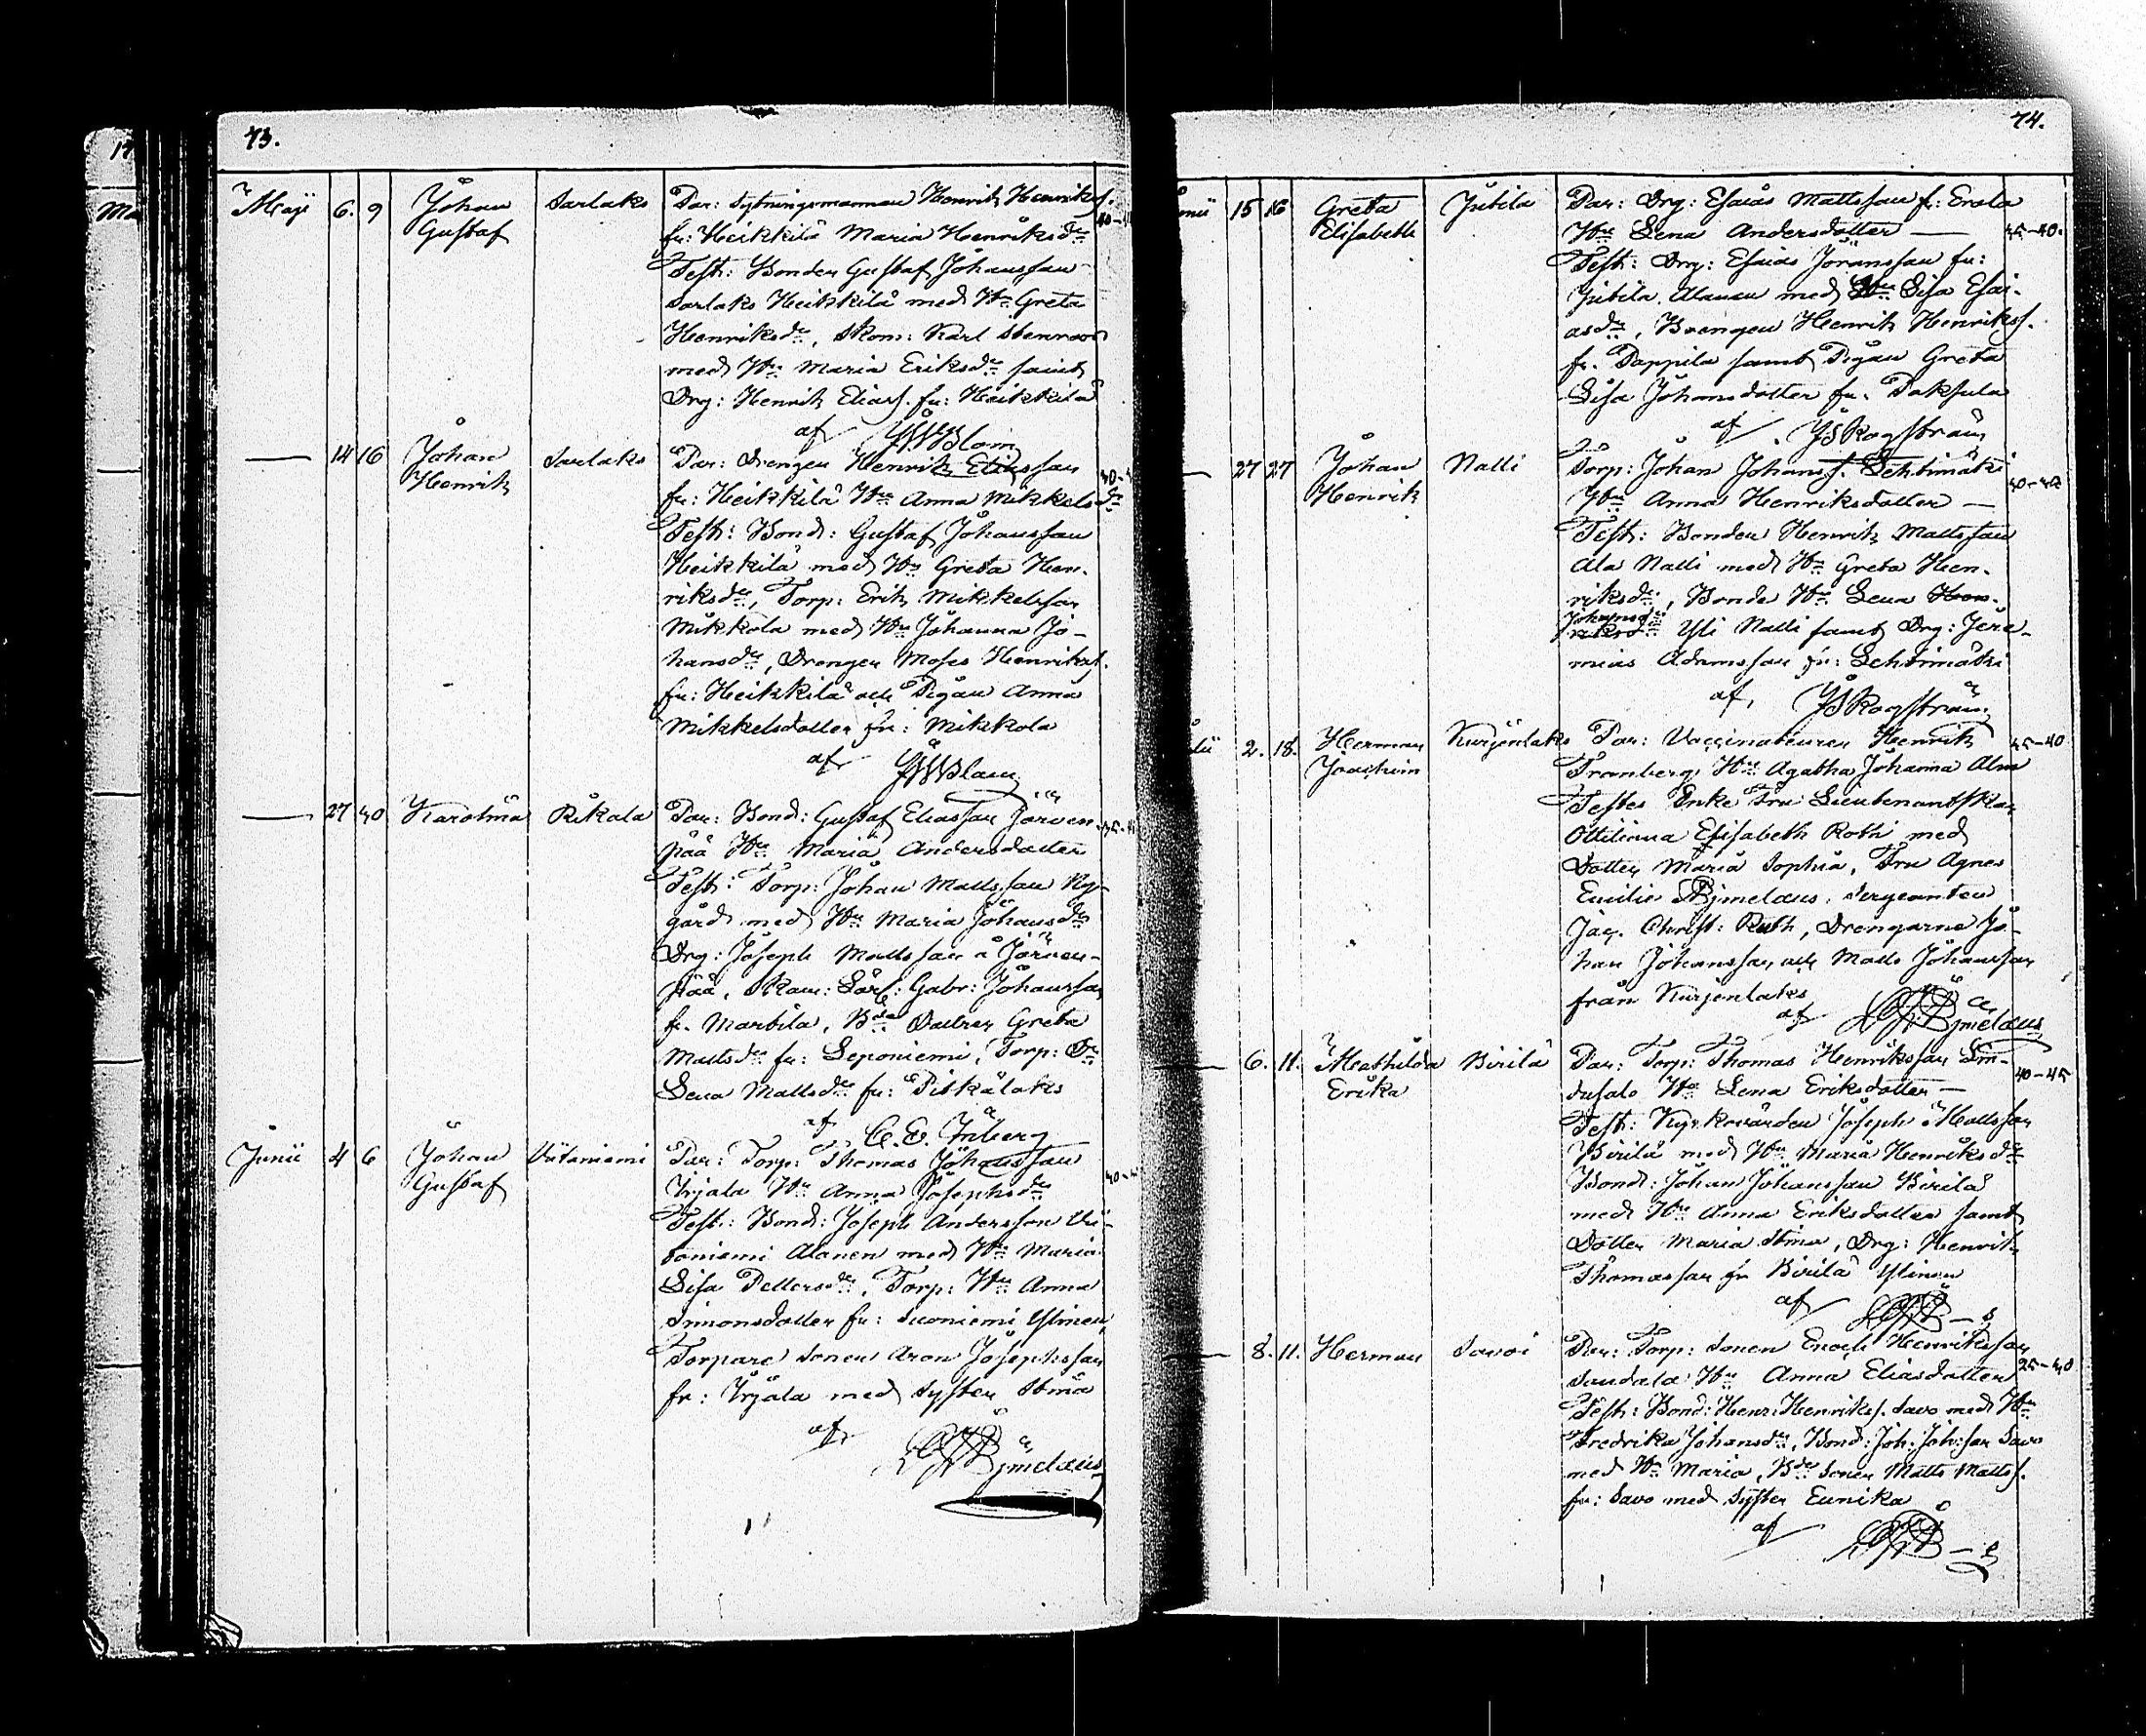 73.
Maji 6. 9 Johan Gustaf Sarlaks
Par: Sytningsmannen Henrik Henrikss.
fr: Heikkilä Maria Henriksdr
Test: Bonden Gustaf Johansson
Sarlaks Heikkilä med Hu Greta
Henriksdr, Skom: Karl Stenroos
med Hu Maria Eriksdr samt
Drg: Henrik Eliass. fr: Heikkilä
af
— 14 16 Johan Henrik Sarlaks
Par: Drengen Henrik Eliasson
fr: Heikkilä Hu Anna Mikkelsdr
Test: Bond: Gustaf Johansson
Heikkilä med Hu Greta Hen-
riksdr, Torp: Erik Mikkelsson
Mikkola med Hu Johanna Jo-
hansdr, Drengen Moses Henrikss.
fr: Heikkilä och Pigan Anna
Mikkelsdotter fr: Mikkola
af
— 27 30 Karolina Rikala
Par: Bond: Gustaf Eliasson Järven-
pää Hu Maria Andersdotter
Test: Torp: Johan Mattsson Ny-
gård med Hu Maria Johansdr
Drg: Joseph Mattsson a Järven-
pää, Skom: Lärl: Gabr: Johansson
fr. Marttila, Bde Dottren Greta
Mattsdr fr: Leponiemi, Torp: Dr
Lena Mattsdr fr: Piskälaks
af C. E. Inberg
Junii 4 6 Johan Gustaf Viitaniemi
Par: Torp: Thomas Johansson
Yrjala Hu Anna Josephsdr
Test: Bond: Joseph Andersson Vii-
taniemi Alanen med Hu Maria
Lisa Pettersdr, Torp: Hu Anna
Simonsdotter fr: Suoniemi Ylinen,
Torpare Sonen Aron Josephsson
fr: Yrjala med Syster Stina
af
74.
15 16 Greta Elisabeth Jutila
Par: Drg: Esaias Mattsson fr: Erola
Hu Lena Andersdotter —
35-40.
Test: Drg: Esaias Joransson fr:
Jutila Alanen med Hu Lisa Esai-
asdr, Drengen Henrik Henrikss.
fr. Pappila samt Pigan Greta
Lisa Johansdotter fr. Paksula
af J Skogström
— 27 27 Johan Henrik Nalli
Torp: Johan Johanss. Lehtimäki
Hu Anna Henriksdotter —
Test: Bonden Henrik Mattsson
Ala Nalli med Hu Greta Hen-
riksdr, Bonde Hu Lena Hen-
Johansdr
riksdr Yli Nalli samt Drg: Jere-
mias Adamsson fr: Lehtimäki
af, J Skogström
2. 18. Herman Joachim Kurjenlaks
Par: Vaccinateuren Henrik
35-40
Tranberg, Hu Agatha Johanna Alm
Testes Enke Fru Lieutenantskan
Ottiliana Elisabeth Roth med
Dotter Maria Sophia, Fru Agnes
Emilie Bjmelæus, Sergeanten
Jac. Christ: Ruth, Drengarne Jo-
han Johansson och Matts Johansson
från Kurjenlaks
af
— 6. 11. Mathilda Erika Birilä
Par: Torp: Thomas Henriksson Lin-
dusalo Hu Lena Eriksdotter —
40-45
Test: Kyrkovärden Joseph Mattsson
Birilä med Hu Maria Henriksdr
Bond: Johan Johansson Birilä
med Hu Anna Eriksdotter samt
Dotter Maria Stina, Drg: Henrik
Thomasson fr Birilä Ylinen
af
— 8. 11. Herman Savoi
Par: Torp: Sonen Enoch Henriksson
Sandala Hu Anna Eliasdotter
25-30
Test: Bond: Henr: Henrikss. Savo med Hu
Fredrika Johansdr, Bond: Joh: Joh:son Savo
med Hu Maria, Bde Sonen Matts Mattss.
fr: Savo med Syster Eunika
af